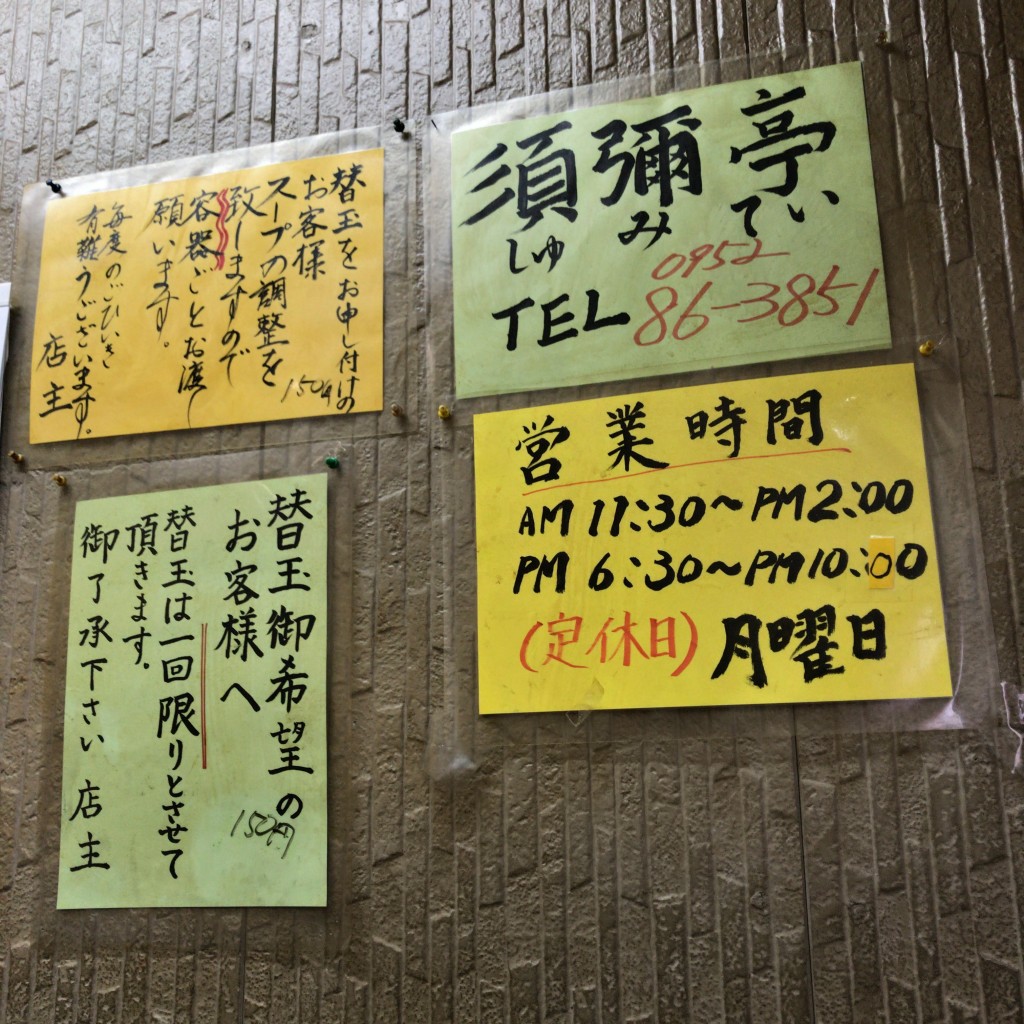 替玉をお申し付けの
お客様
スープの調整を
致しますので
容器ごとお渡し
願います。
毎度のごひいき
有難うございます。
店主
150円
須彌亭
しゅみてい
0952
TEL 86-3851
営業時間
AM 11:30～PM 2:00
PM 6:30～PM 10:00
(定休日) 月曜日
替玉御希望の
お客様へ
替玉は一回限りとさせて
頂きます。
御了承下さい 店主
150円